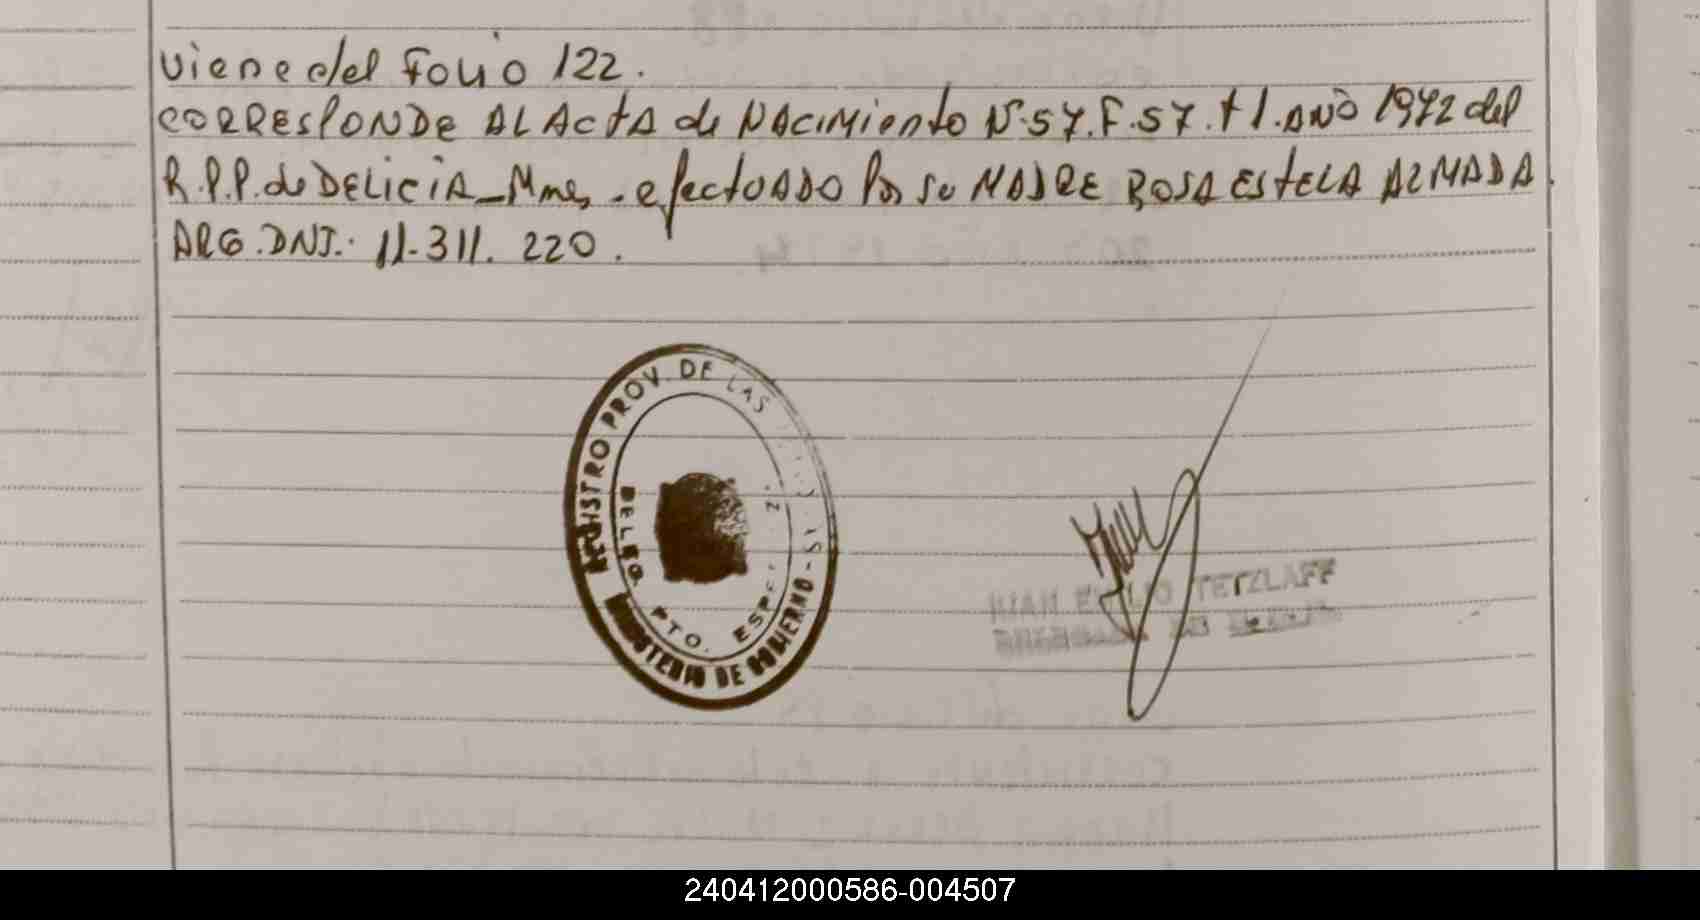 Viene del Folio 122.
CORRESPONDE AL ActA de NAcimiento Nº 57. F. 57. t 1. AÑO 1972 del
R.P.P. de DELICIA - Mnes - efectUADO Por su MADRE ROSA EStELA ALMADA.
ARG. DNI.: 11.311. 220.
REGISTRO PROV. DE LAS
DELEG. PTO. ESP.
MINISTERIO DE GOBIERNO -
TETZLAFF
240412000586-004507